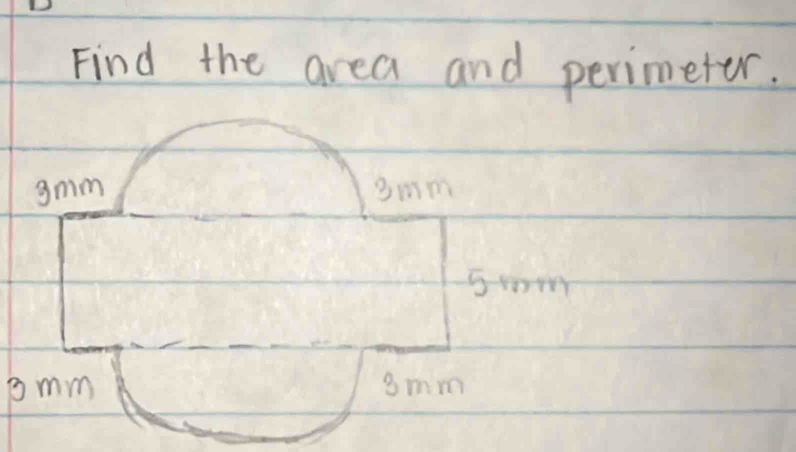 Find the area and perimeter.
3mm 3mm
5mm
3mm 3mm